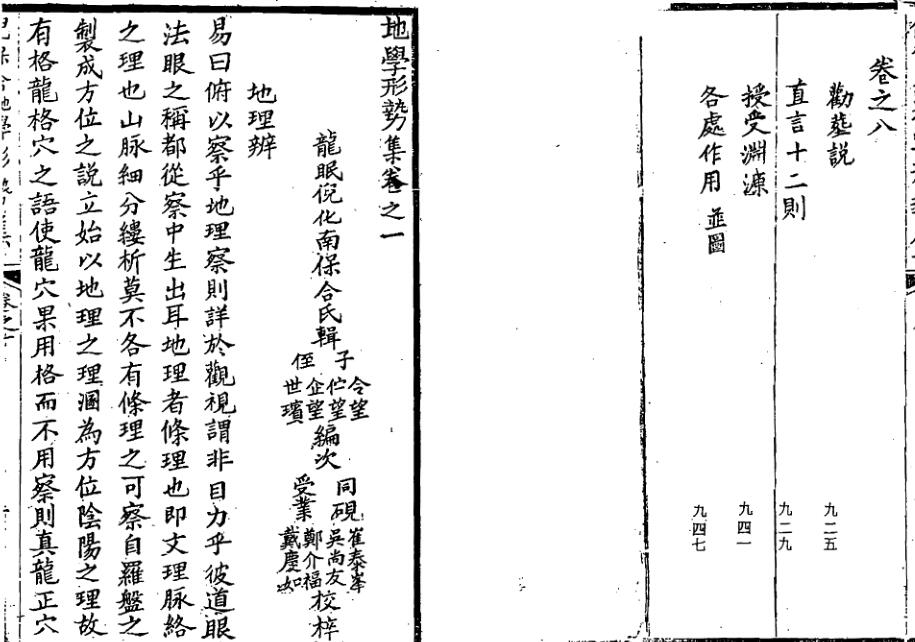 卷之八
勸塟說
九二五
直言十二則
九二九
授受淵源
九四一
各處作用 並圖
九四七
地學形勢集卷之一
龍眠倪化南保合氏輯
子
令望
伫望
侄
企望
世璸
編次
同硯
崔泰峯
吳尚友
受業
鄭介福
戴慶如
校梓
地理辨
易曰俯以察乎地理察則詳於觀視謂非目力乎彼道眼
法眼之稱都從察中生出耳地理者條理也即文理脉絡
之理也山脉細分縷析莫不各有條理之可察自羅盤之
製成方位之説立始以地理之理溷為方位陰陽之理故
有格龍格穴之語使龍穴果用格而不用察則真龍正穴